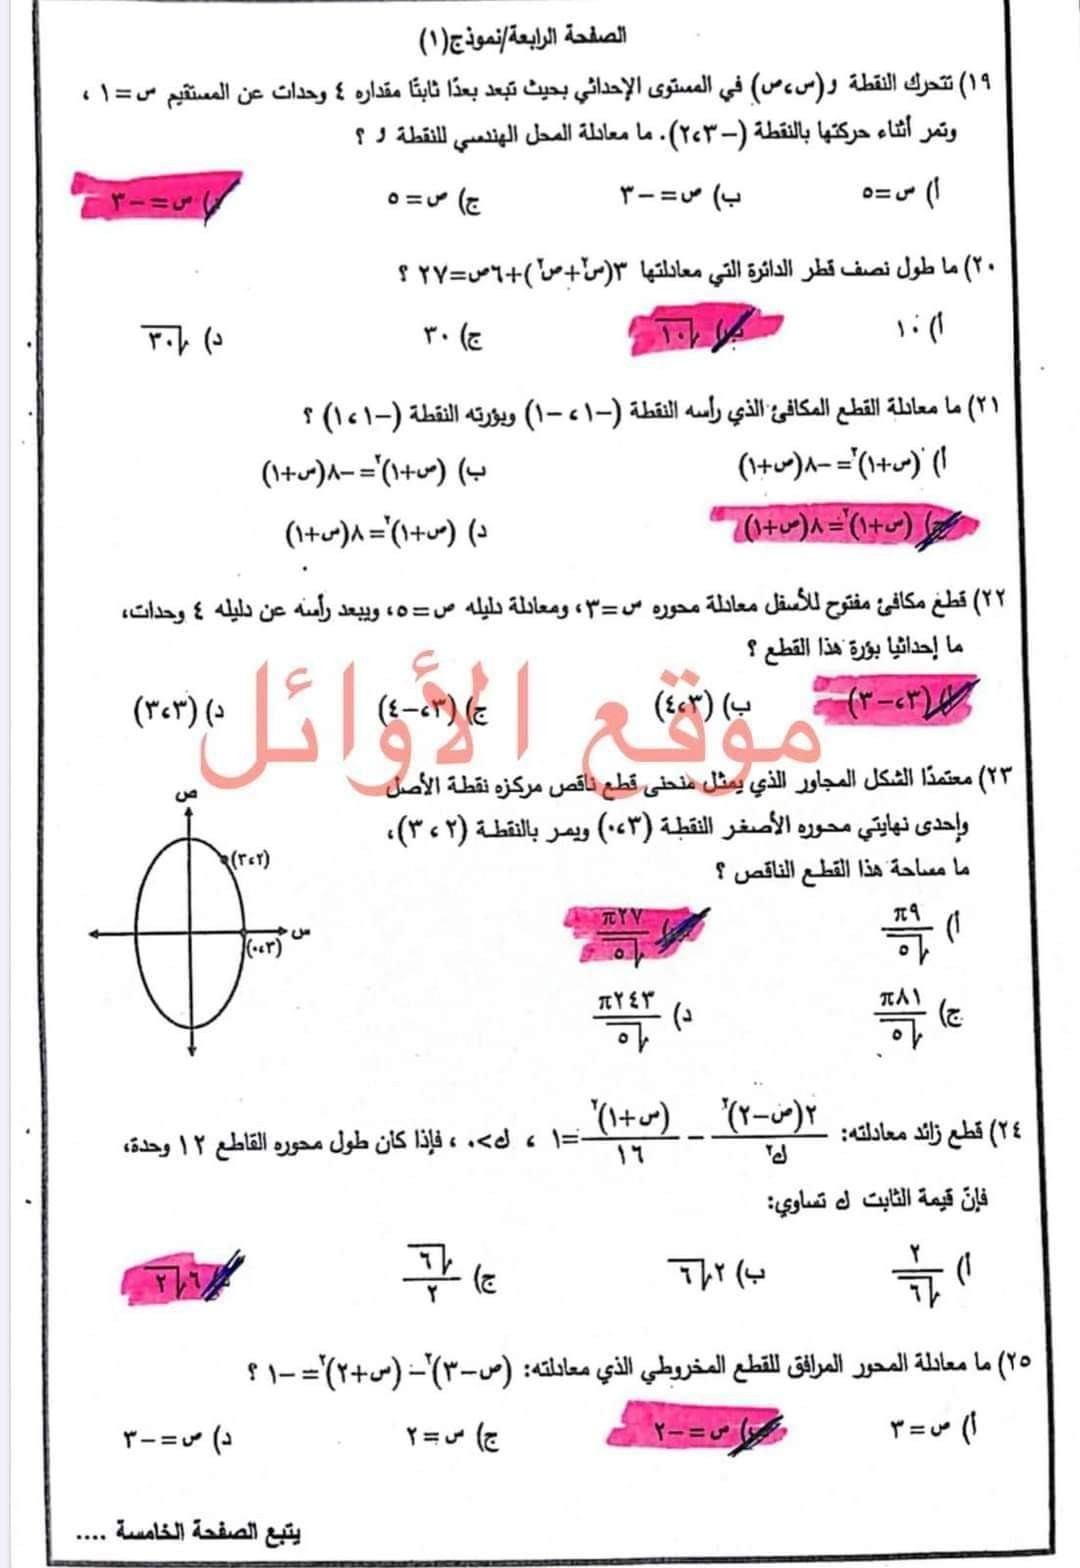 الصفحة الرابعة/نموذج(١)
١٩) تتحرك النقطة و(س،ص) في المستوى الإحداثي بحيث تبعد بعدًا ثابتًا مقداره ٤ وحدات عن المستقيم س=١ ،
وتمر أثناء حركتها بالنقطة (-٢،٣). ما معادلة المحل الهندسي للنقطة و ؟
أ) س=٥ ب) ص=-٣ ج) ص=٥ د) س=-٣
٢٠) ما طول نصف قطر الدائرة التي معادلتها ٣(س٢+ص٢)+٦ص=٢٧ ؟
أ) ١٠ ب) √١٠ ج) ٣٠ د) √٣٠
٢١) ما معادلة القطع المكافئ الذي رأسه النقطة (-١،-١) وبؤرته النقطة (-١،١) ؟
أ) (س+١)٢=-٨(ص+١) ب) (ص+١)٢=-٨(س+١)
ج) (س+١)٢=٨(ص+١) د) (ص+١)٢=٨(س+١)
٢٢) قطع مكافئ مفتوح للأسفل معادلة محوره س=٣، ومعادلة دليله ص=٥، ويبعد رأسه عن دليله ٤ وحدات،
ما إحداثيا بؤرة هذا القطع ؟
أ) (٣،-٣) ب) (٤،٣) ج) (٣،-٤) د) (٣،٣)
موقع الأوائل
٢٣) معتمدًا الشكل المجاور الذي يمثل منحنى قطع ناقص مركزه نقطة الأصل
وإحدى نهايتي محوره الأصغر النقطة (٠،٣) ويمر بالنقطة (٢ ، ٣)،
ما مساحة هذا القطع الناقص ؟
ص
(٣،٢)
س
(٠،٣)
أ) π٩/√٥ ب) π٢٧/√٥
ج) π٨١/√٥ د) π٢٤٣/√٥
٢٤) قطع زائد معادلته: ٢(ص-٢)٢/ك٢ - (س+١)٢/١٦ =١ ، ك>٠ ، فإذا كان طول محوره القاطع ١٢ وحدة،
فإنّ قيمة الثابت ك تساوي:
أ) ٢/√٦ ب) ٢√٦ ج) √٦/٢ د) ٦√٢
٢٥) ما معادلة المحور المرافق للقطع المخروطي الذي معادلته: (ص-٣)٢-(س+٢)٢=-١ ؟
أ) ص=٣ ب) س=-٢ ج) س=٢ د) ص=-٣
يتبع الصفحة الخامسة ....